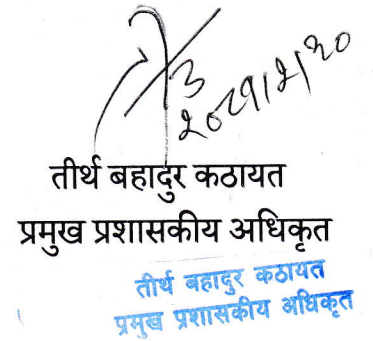 तीर्थ बहादुर कठायत
प्रमुख प्रशासकीय अधिकृत
तीर्थ बहादुर कठायत
प्रमुख प्रशासकीय अधिकृत